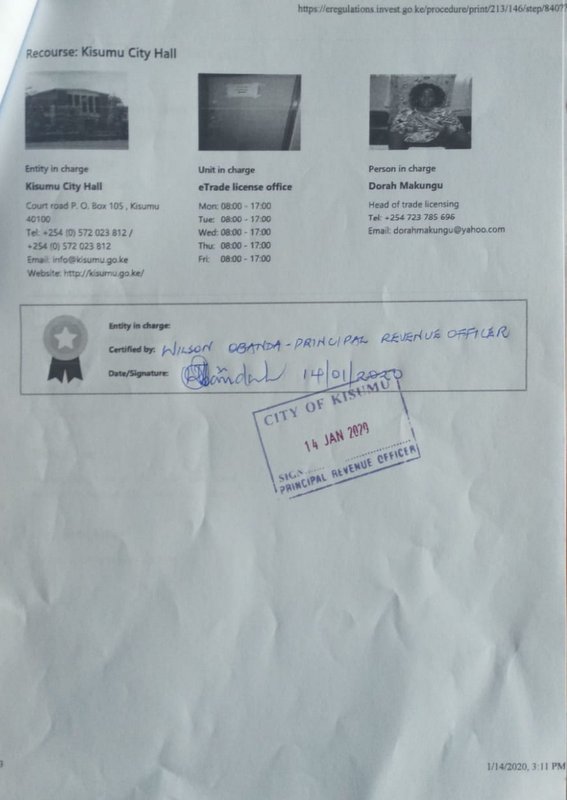 https://eregulations.invest.go.ke/procedure/print/213/146/step/840??
Recourse: Kisumu City Hall
Entity in charge
Kisumu City Hall
Court road P. O. Box 105 , Kisumu
40100
Tel: +254 (0) 572 023 812 /
+254 (0) 572 023 812
Email: info@kisumu.go.ke
Website: http://kisumu.go.ke/
Unit in charge
eTrade license office
Mon: 08:00 - 17:00
Tue: 08:00 - 17:00
Wed: 08:00 - 17:00
Thu: 08:00 - 17:00
Fri: 08:00 - 17:00
Person in charge
Dorah Makungu
Head of trade licensing
Tel: +254 723 785 696
Email: dorahmakungu@yahoo.com
Entity in charge:
Certified by: WILSON OBANDA - PRINCIPAL REVENUE OFFICER
Date/Signature: 14/01/2020
CITY OF KISUMU
14 JAN 2020
SIGN
PRINCIPAL REVENUE OFFICER
1/14/2020, 3:11 PM